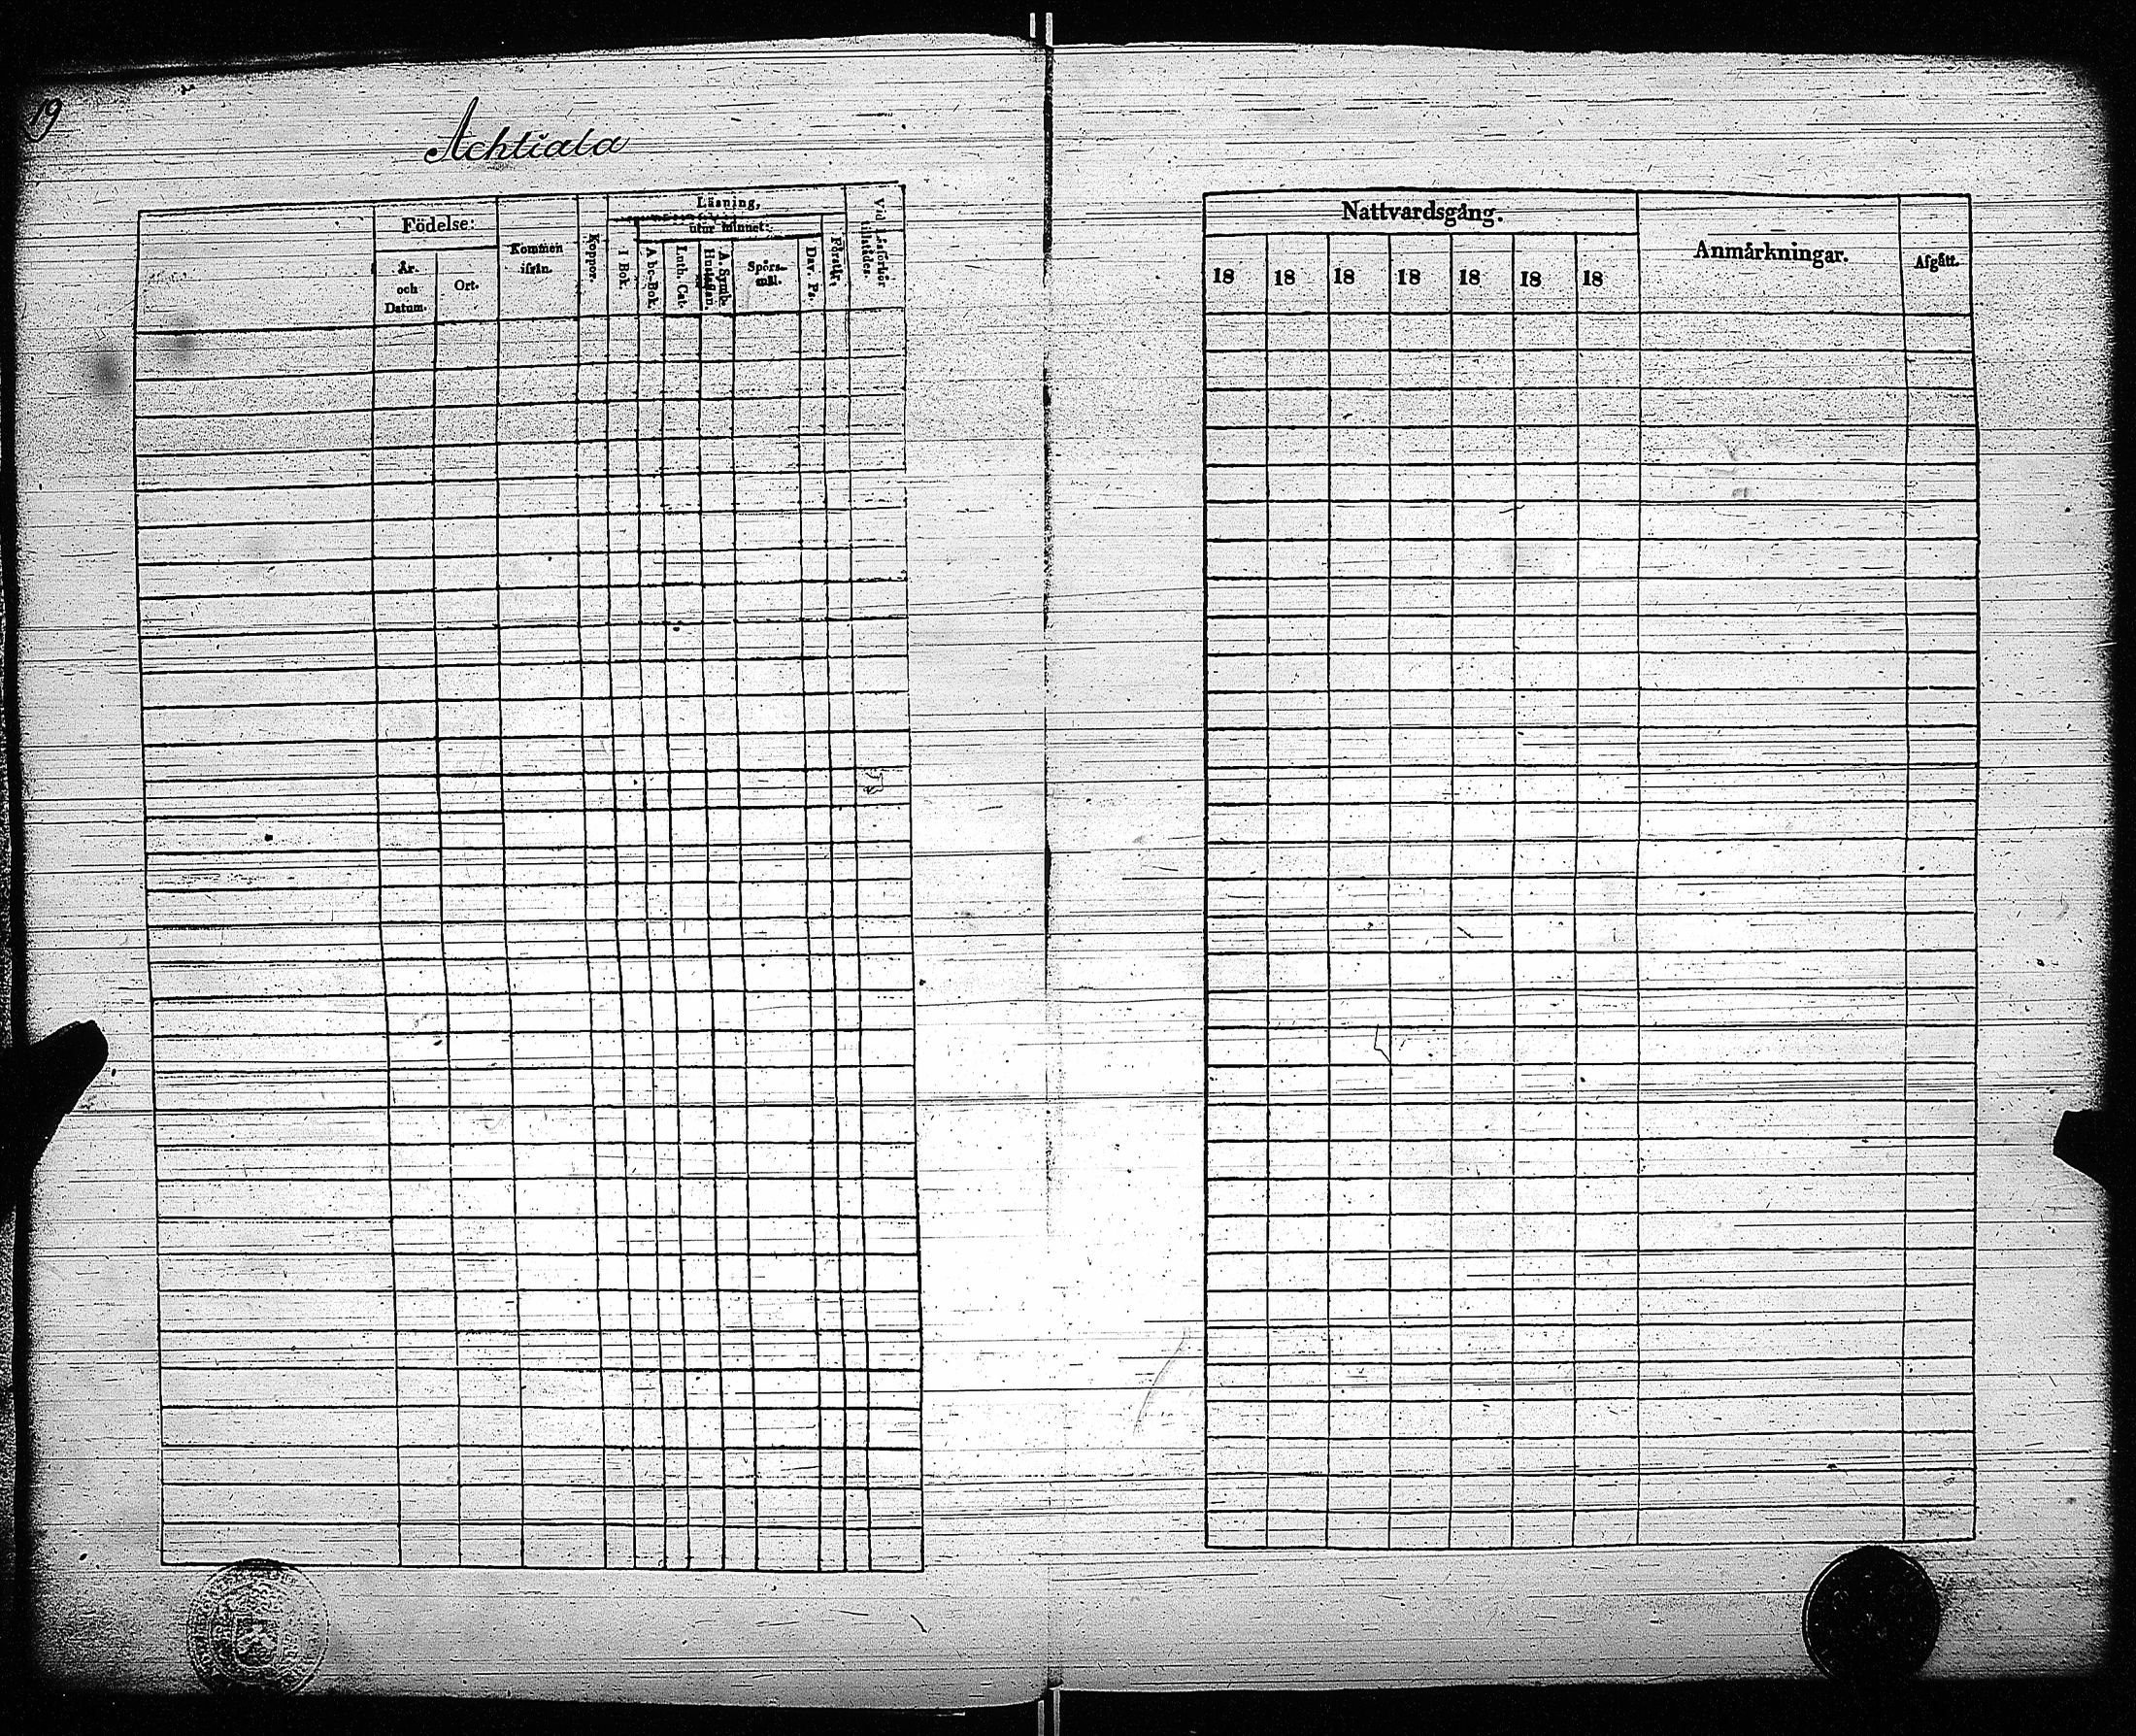 19
Achtiala
Födelse:
År och Datum.
Ort.
Kommen ifrån.
Koppor.
Läsning,
utur minnet:
I Bok.
A bc-Bok.
Luth. Cat.
Hustaflan.
A. Symb.
Spörs-mål.
Dav. Ps.
Förstår.
Vid Läsförhör tillstädes.
Nattvardsgång.
18 18 18 18 18 18 18
Anmärkningar.
Afgått.